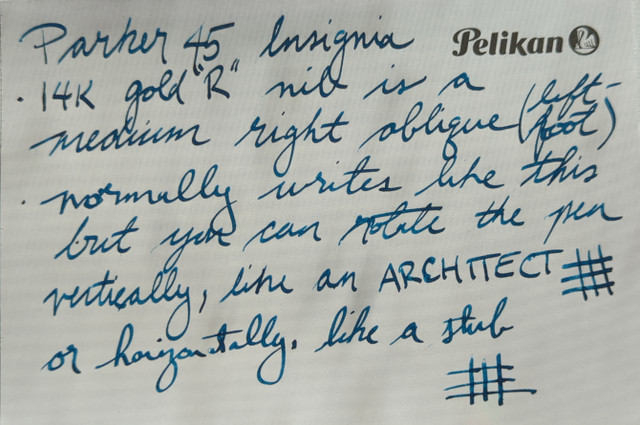 Parker 45 Insignia
Pelikan
· 14K gold "R" nib is a
medium right oblique (left-foot)
· normally writes like this
but you can rotate the pen
vertically, like an ARCHITECT
or horizontally, like a stub